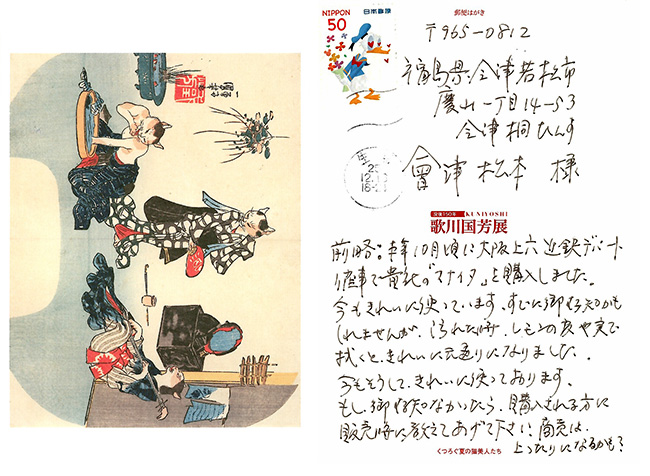 NIPPON 日本郵便
50
郵便はがき
〒965-0812
福島県会津若松市
慶山一丁目14-53
会津桐たんす
會津松本 様
没後150年 KUNIYOSHI
歌川国芳展
前略:10月頃に大阪上六近鉄デパート
催事で貴社の"マナイタ"を購入しました。
今もきれいに使っています。すでに御存知かも
しれませんが、汚れた時、レモンの皮や実で
拭くと、きれいに元通りになりました。
今もそうして、きれいに使っております。
もし、御存知なかったら、購入される方に
販売時に教えてあげて下さい。商売は
上ったりになるかも?
くつろぐ夏の猫美人たち